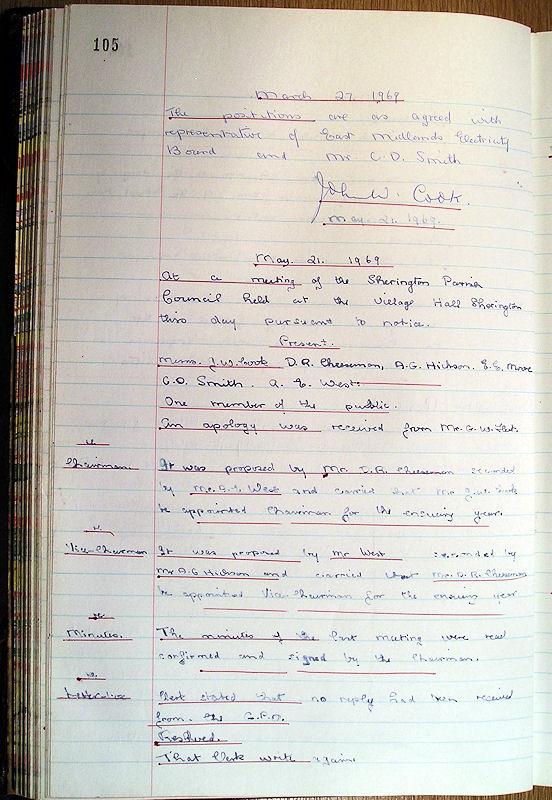 105
March 27. 1969
The positions are as agreed with
representative of East Midlands Electricity
Board and Mr C.D. Smith
John W. Cook.
May. 21. 1969.
May. 21. 1969
At a meeting of the Sherington Parish
Council held at the Village Hall Sherington
this day pursuant to notice.
Present.
Messrs. J.W. Cook D.R. Cheeseman, A.G. Hickson. E.E. Move
C.D. Smith. A. E. West.
One member of the public.
An apology was received from Mr. G.W.
Chairman. It was proposed by Mr. D.R. Cheeseman seconded
by Mr. A.E. West and carried that Mr J.W. Cook
be appointed Chairman for the ensuing year.
Vice-Chairman It was proposed by Mr West seconded by
Mr A.G Hickson and carried that Mr. D.R. Cheeseman
be appointed Vice-Chairman for the ensuing year
Minutes. The minutes of the last meeting were read
confirmed and signed by the Chairman.
Clerk stated that no reply had been received
from the G.P.O.
Resolved.
That Clerk write again.